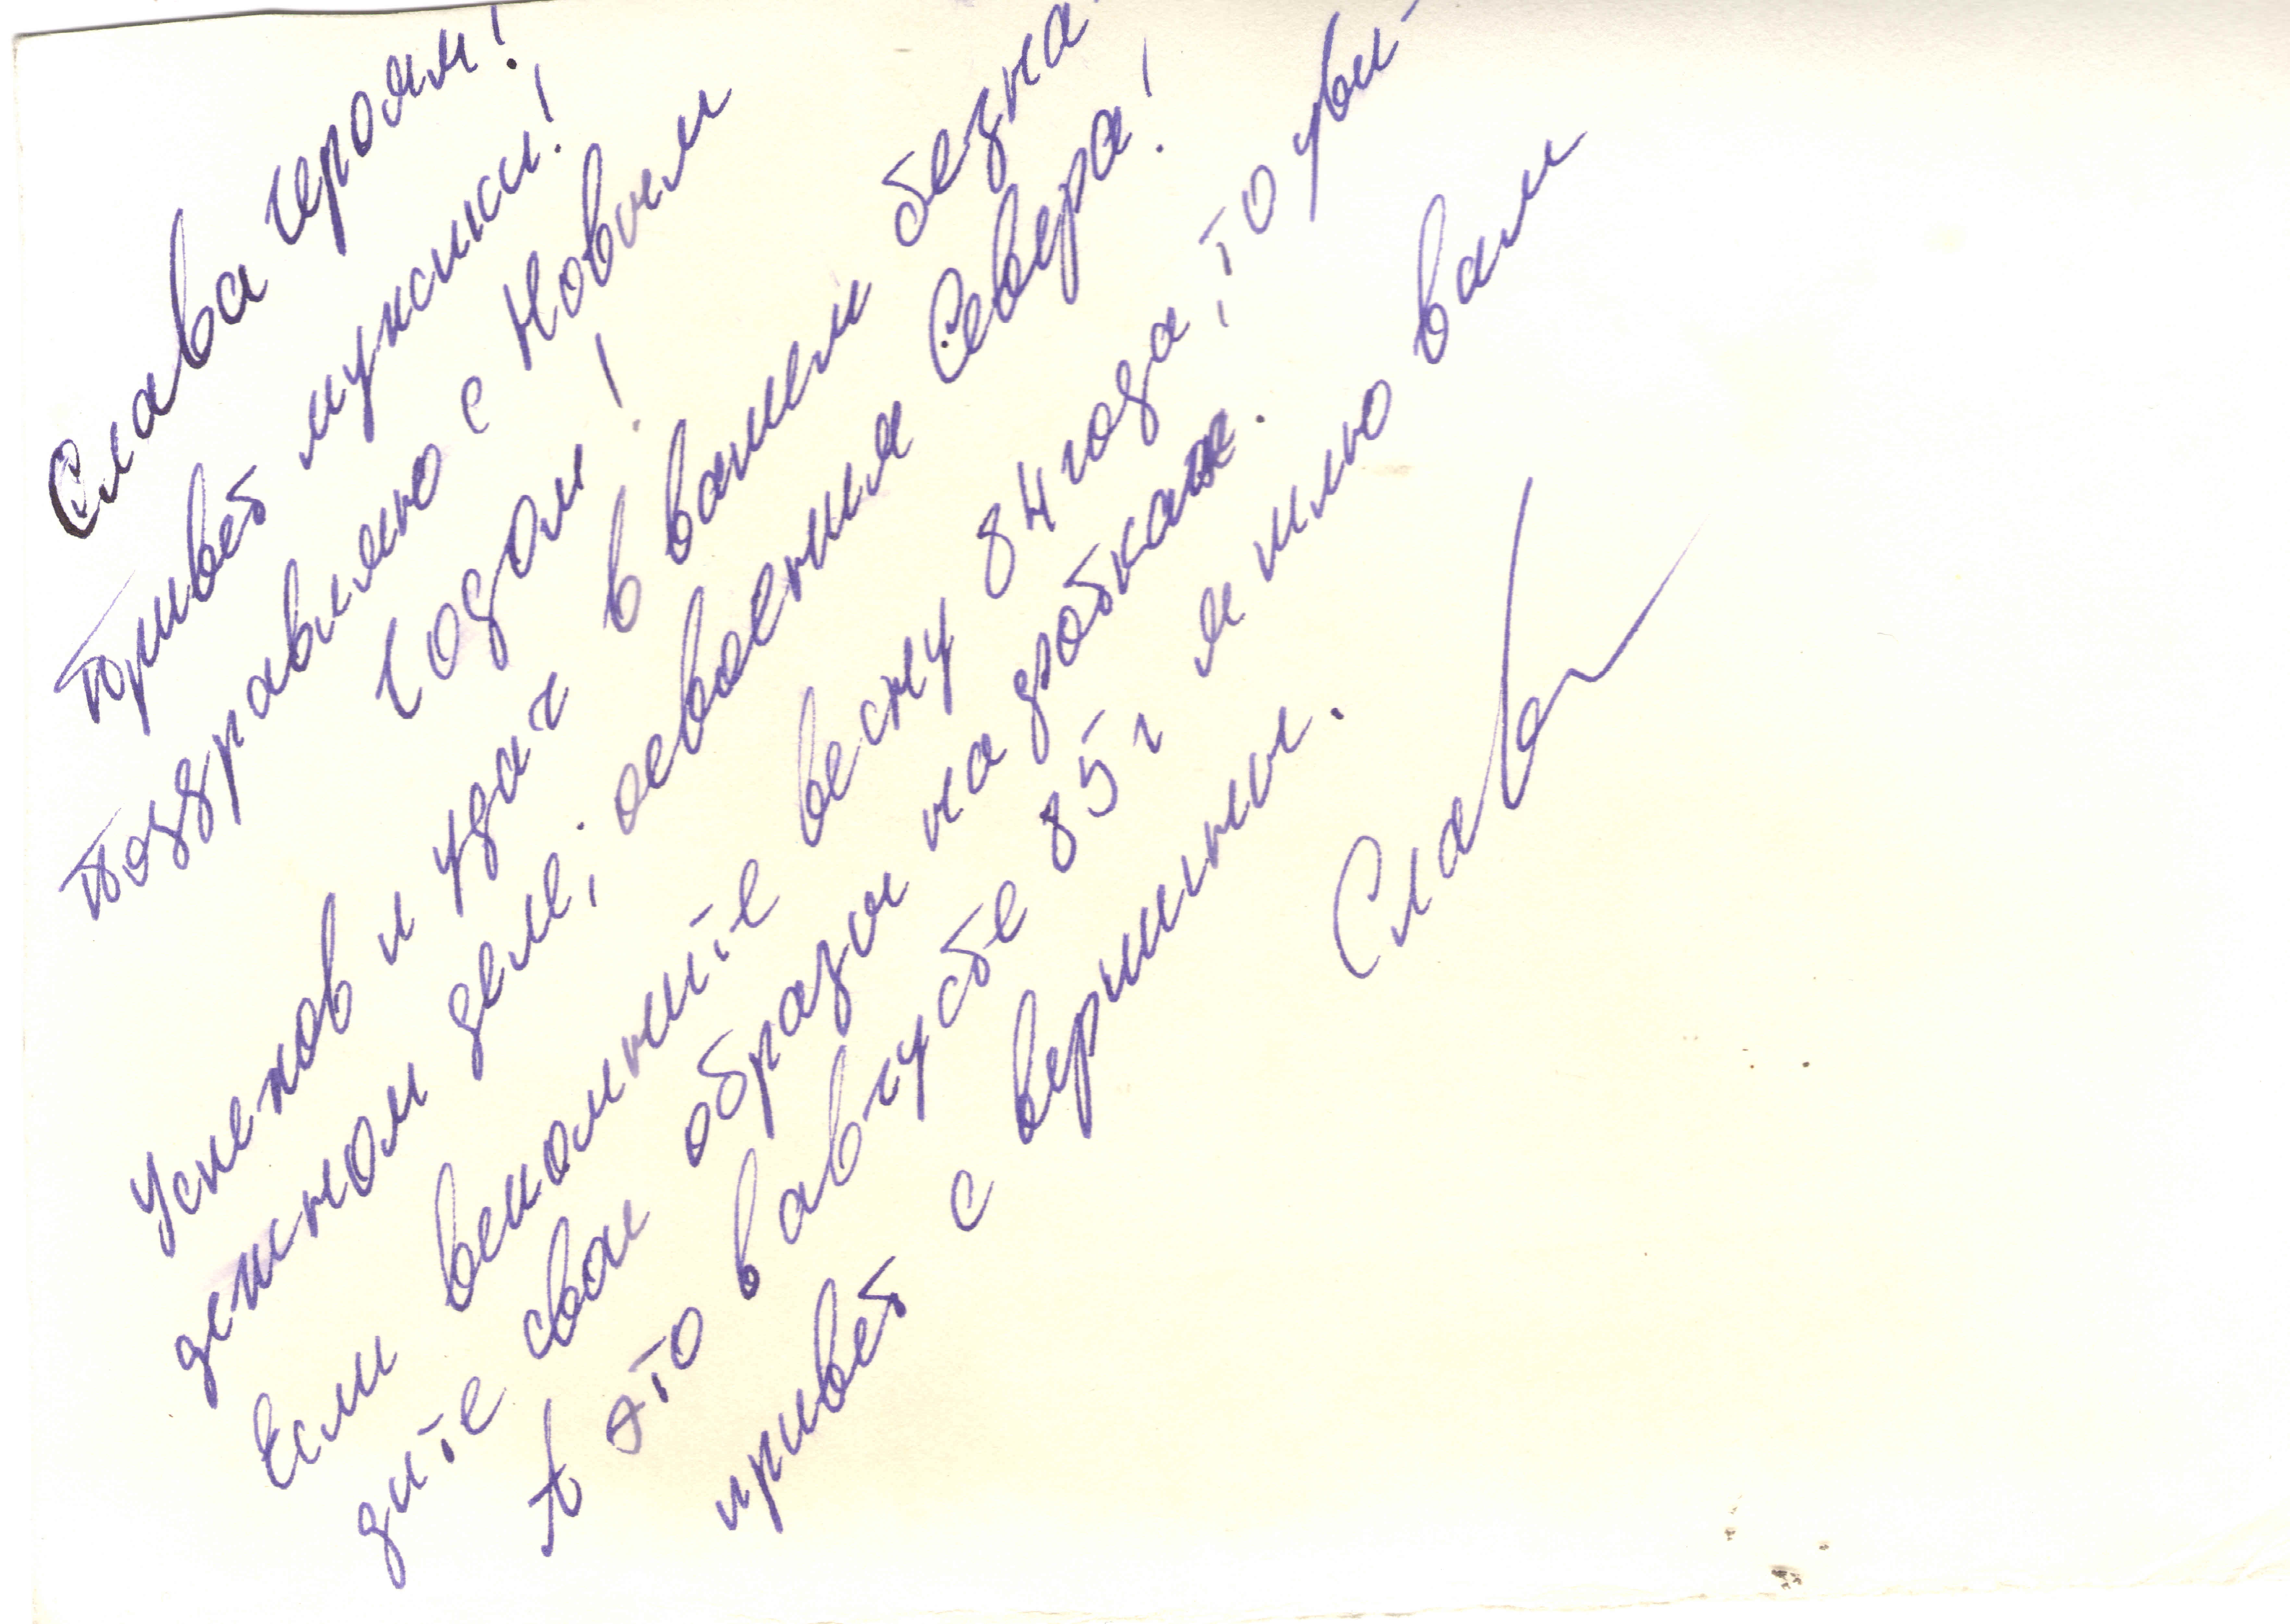 Слава героям!
Привет мужики!
Поздравляю с Новым
годом!
Успехов и удач в вашем безна-
дежном деле, освоения Севера!
Если вспомните весну 84 года, то уви-
дите свои образы на
А это в августе 85 г я шлю вам
привет с вершины.
Слава